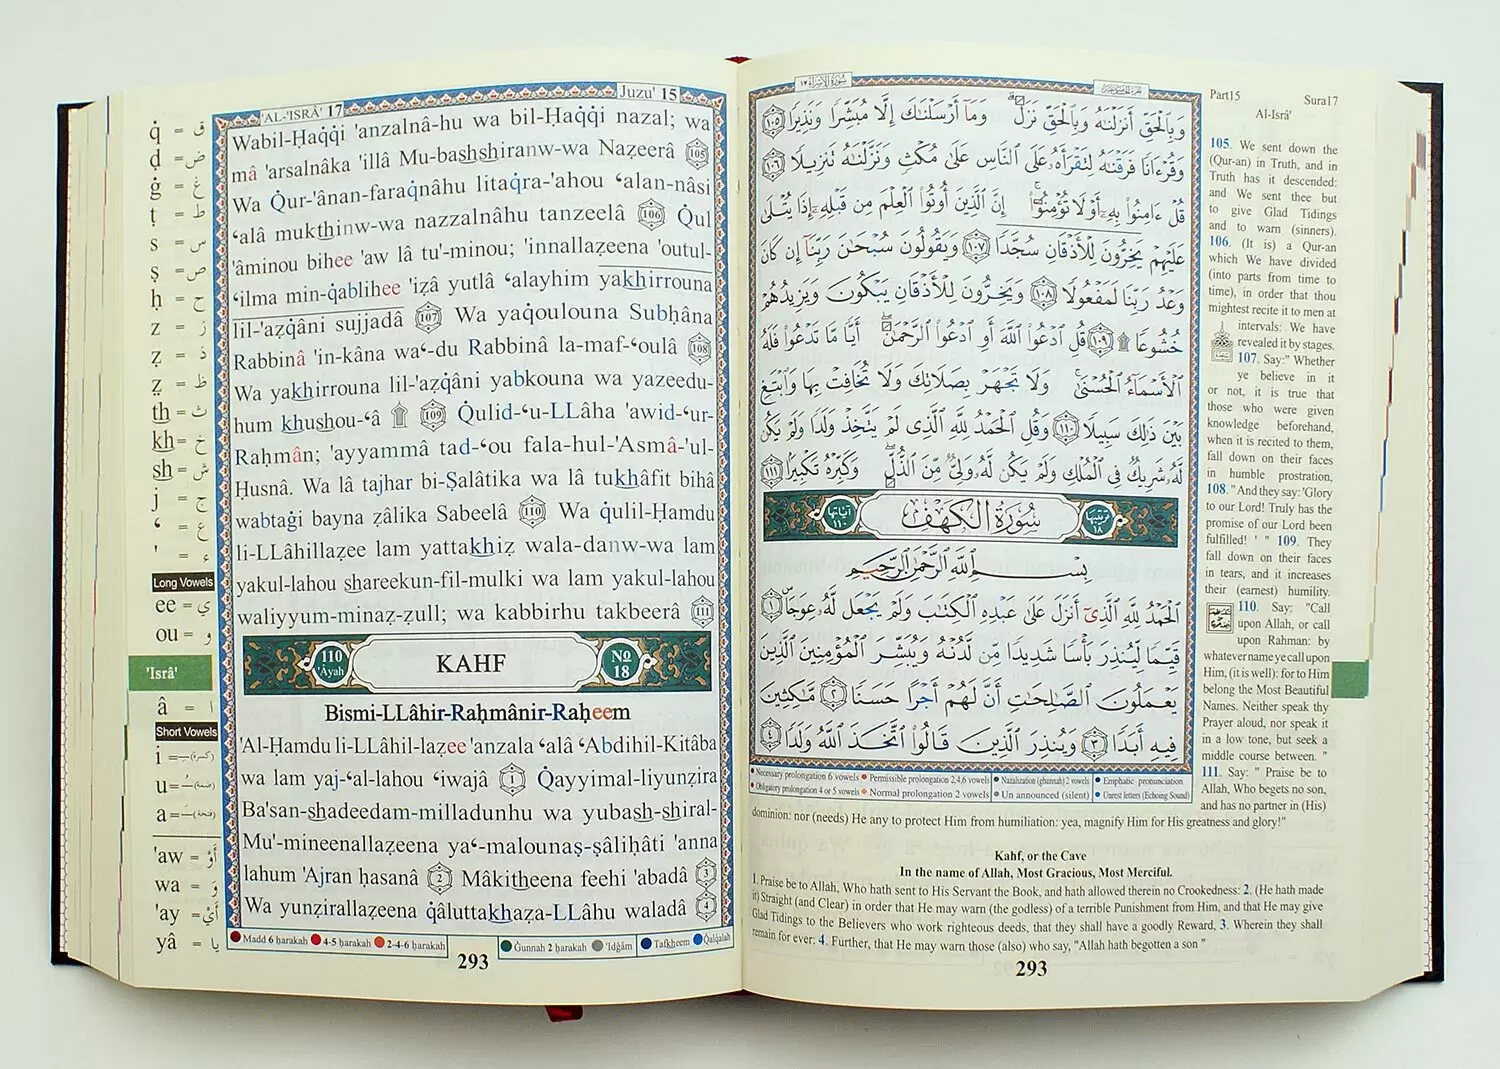 'AL-'ISRÂ' 17
Juzu' 15
Wabil-Ḥaq̇q̇i 'anzalnâ-hu wa bil-Ḥaq̇q̇i nazal; wa
mâ 'arsalnâka 'illâ Mu-bashshiranw-wa Naẓeerâ 105
Wa Q̇ur-'ânan-faraq̇nâhu litaq̇ra-'ahou ʻalan-nâsi
ʻalâ mukthinw-wa nazzalnâhu tanzeelâ 106 Q̇ul
'âminou bihee 'aw lâ tu'-minou; 'innallaẓeena 'outul-
ʻilma min-q̇ablihee 'iẓâ yutlâ ʻalayhim yakhirrouna
lil-'aẓq̇âni sujjadâ 107 Wa yaq̇oulouna Subḥâna
Rabbinâ 'in-kâna waʻ-du Rabbinâ la-maf-ʻoulâ 108
Wa yakhirrouna lil-'aẓq̇âni yabkouna wa yazeedu-
hum khushou-ʻâ ۩ 109 Q̇ulid-ʻu-LLâha 'awid-ʻur-
Raḥmân; 'ayyammâ tad-ʻou fala-hul-'Asmâ-'ul-
Ḥusnâ. Wa lâ tajhar bi-Ṣalâtika wa lâ tukhâfit bihâ
wabtaġi bayna ẓâlika Sabeelâ 110 Wa q̇ulil-Ḥamdu
li-LLâhillaẓee lam yattakhiẓ wala-danw-wa lam
yakul-lahou shareekun-fil-mulki wa lam yakul-lahou
waliyyum-minaẓ-ẓull; wa kabbirhu takbeerâ 111
110 'Âyah
KAHF
No 18
Bismi-LLâhir-Raḥmânir-Raḥeem
'Al-Ḥamdu li-LLâhil-laẓee 'anzala ʻalâ ʻAbdihil-Kitâba
wa lam yaj-ʻal-lahou ʻiwajâ 1 Q̇ayyimal-liyunẓira
Ba'san-shadeedam-milladunhu wa yubash-shiral-
Mu'-mineenallaẓeena yaʻ-malounaṣ-ṣâliḥâti 'anna
lahum 'Ajran ḥasanâ 2 Mâkitheena feehi 'abadâ 3
Wa yunẓirallaẓeena q̇âluttakhaẓa-LLâhu waladâ 4
q̇ = ق
ḍ = ض
ġ = غ
ṭ = ط
s = س
ṣ = ص
ḥ = ح
z = ز
ẓ = ذ
ẓ = ظ
th = ث
kh = خ
sh = ش
j = ج
ʻ = ع
' = ء
Long Vowels
ee = ي
ou = و
'Isrâ'
â = ا
Short Vowels
i = (كسرة)
u = (ضمة)
a = (فتحة)
'aw = أَوْ
wa = وَ
'ay = أَيْ
yâ = يا
Madd 6 ḥarakah 4-5 ḥarakah 2-4-6 ḥarakah
Ġunnah 2 ḥarakah 'Idġâm Tafkheem Q̇alq̇alah
293
سُورَةُ الْإِسْرَاءِ ١٧
وَبِالْحَقِّ أَنزَلْنَٰهُ وَبِالْحَقِّ نَزَلَ ۗ وَمَآ أَرْسَلْنَٰكَ إِلَّا مُبَشِّرًا وَنَذِيرًا ١٠٥
وَقُرْءَانًا فَرَقْنَٰهُ لِتَقْرَأَهُۥ عَلَى النَّاسِ عَلَىٰ مُكْثٍ وَنَزَّلْنَٰهُ تَنزِيلًا ١٠٦
قُلْ ءَامِنُوا۟ بِهِۦٓ أَوْ لَا تُؤْمِنُوٓا۟ ۚ إِنَّ الَّذِينَ أُوتُوا۟ الْعِلْمَ مِن قَبْلِهِۦٓ إِذَا يُتْلَىٰ
عَلَيْهِمْ يَخِرُّونَ لِلْأَذْقَانِ سُجَّدًا ١٠٧ وَيَقُولُونَ سُبْحَٰنَ رَبِّنَآ إِن كَانَ
وَعْدُ رَبِّنَا لَمَفْعُولًا ١٠٨ وَيَخِرُّونَ لِلْأَذْقَانِ يَبْكُونَ وَيَزِيدُهُمْ
خُشُوعًا ۩ ١٠٩ قُلِ ادْعُوا۟ اللَّهَ أَوِ ادْعُوا۟ الرَّحْمَٰنَ ۖ أَيًّا مَّا تَدْعُوا۟ فَلَهُ
الْأَسْمَآءُ الْحُسْنَىٰ ۚ وَلَا تَجْهَرْ بِصَلَاتِكَ وَلَا تُخَافِتْ بِهَا وَابْتَغِ
بَيْنَ ذَٰلِكَ سَبِيلًا ١١٠ وَقُلِ الْحَمْدُ لِلَّهِ الَّذِى لَمْ يَتَّخِذْ وَلَدًا وَلَمْ يَكُن
لَّهُۥ شَرِيكٌ فِى الْمُلْكِ وَلَمْ يَكُن لَّهُۥ وَلِىٌّ مِّنَ الذُّلِّ ۖ وَكَبِّرْهُ تَكْبِيرًا ١١١
ترتيبها ١٨
سُورَةُ الْكَهْفِ
آياتها ١١٠
بِسْمِ اللَّهِ الرَّحْمَٰنِ الرَّحِيمِ
الْحَمْدُ لِلَّهِ الَّذِىٓ أَنزَلَ عَلَىٰ عَبْدِهِ الْكِتَٰبَ وَلَمْ يَجْعَل لَّهُۥ عِوَجَا ۜ ١
قَيِّمًا لِّيُنذِرَ بَأْسًا شَدِيدًا مِّن لَّدُنْهُ وَيُبَشِّرَ الْمُؤْمِنِينَ الَّذِينَ
يَعْمَلُونَ الصَّٰلِحَٰتِ أَنَّ لَهُمْ أَجْرًا حَسَنًا ٢ مَّٰكِثِينَ
فِيهِ أَبَدًا ٣ وَيُنذِرَ الَّذِينَ قَالُوا۟ اتَّخَذَ اللَّهُ وَلَدًا ٤
Necessary prolongation 6 vowels Permissible prolongation 2,4,6 vowels Nazalization (ghunnah) 2 vowels Emphatic pronounciation
Obligatory prolongation 4 or 5 vowels Normal prolongation 2 vowels Un announced (silent) Unrest letters (Echoing Sound)
Part15 Sura17
Al-Isrâ'
105. We sent down the
(Qur-an) in Truth, and in
Truth has it descended:
and We sent thee but
to give Glad Tidings
and to warn (sinners).
106. (It is) a Qur-an
which We have divided
(into parts from time to
time), in order that thou
mightest recite it to men at
intervals: We have
revealed it by stages.
107. Say:" Whether
ye believe in it
or not, it is true that
those who were given
knowledge beforehand,
when it is recited to them,
fall down on their faces
in humble prostration,
108. "And they say: 'Glory
to our Lord! Truly has the
promise of our Lord been
fulfilled! ' " 109. They
fall down on their faces
in tears, and it increases
their (earnest) humility.
110. Say: "Call
upon Allah, or call
upon Rahman: by
whatever name ye call upon
Him, (it is well): for to Him
belong the Most Beautiful
Names. Neither speak thy
Prayer aloud, nor speak it
in a low tone, but seek a
middle course between. "
111. Say: " Praise be to
Allah, Who begets no son,
and has no partner in (His)
dominion: nor (needs) He any to protect Him from humiliation: yea, magnify Him for His greatness and glory!"
Kahf, or the Cave
In the name of Allah, Most Gracious, Most Merciful.
1. Praise be to Allah, Who hath sent to His Servant the Book, and hath allowed therein no Crookedness: 2. (He hath made
it) Straight (and Clear) in order that He may warn (the godless) of a terrible Punishment from Him, and that He may give
Glad Tidings to the Believers who work righteous deeds, that they shall have a goodly Reward, 3. Wherein they shall
remain for ever: 4. Further, that He may warn those (also) who say, "Allah hath begotten a son "
293